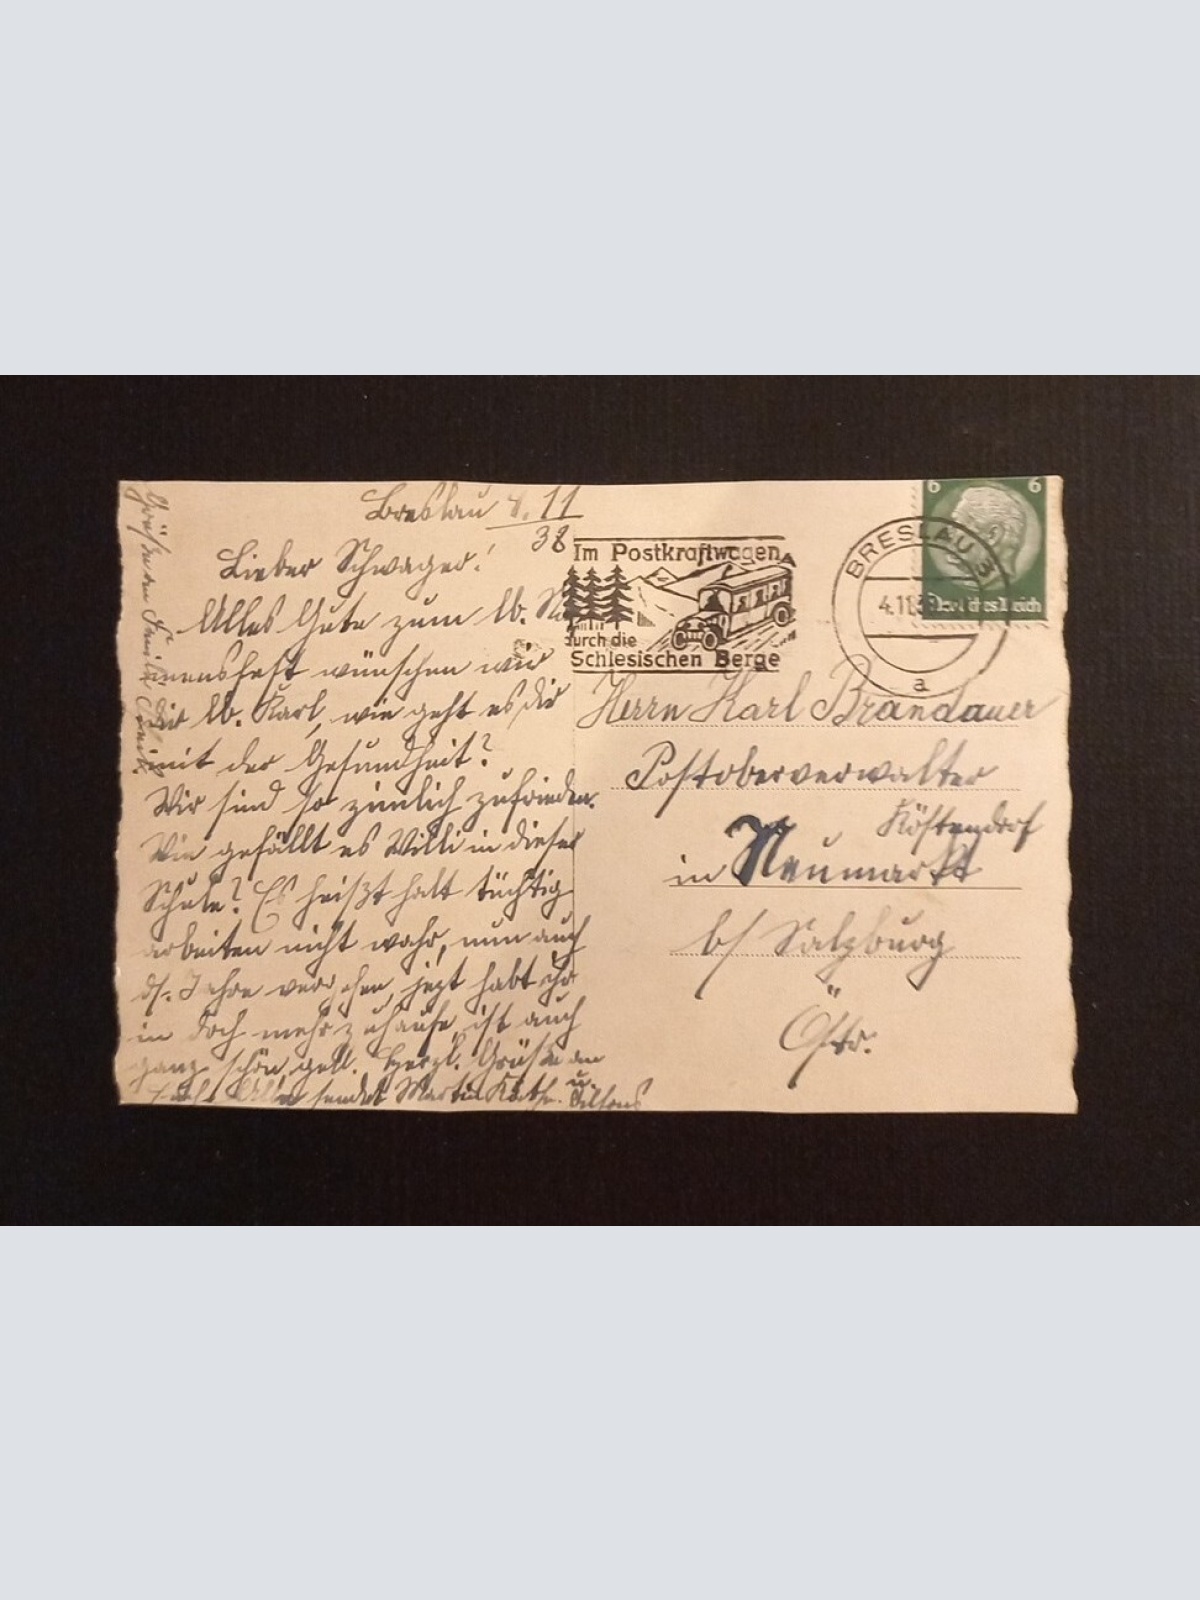 Breslau 4. 11
38
Lieber Schwager!
Alles Gute zum lb. Na
mensfest wünschen wir
Dir lb. Karl, wie geht es Dir
mit der Gesundheit?
Wir sind so zimlich zufrieden.
Wie gefällt es Willi in dieser
Schule? Es heißt halt tüchtig
arbeiten nicht wahr, nun auch
ds. Jahre vergehen, jezt habt ihr
in doch mehr zuhause, ist auch
ganz schön, gell. Herzl. Grüße an
Euch Alle sendet Martin Käthe. u.
Grüße an Familie
Im Postkraftwagen
durch die
Schlesischen Berge
BRESLAU 3
4.11.3
a
6 6
Deutsches Reich
Herrn Karl Brandauer
Postoberverwalter
Köstendorf
in Neumarkt
b/ Salzburg
Östr.